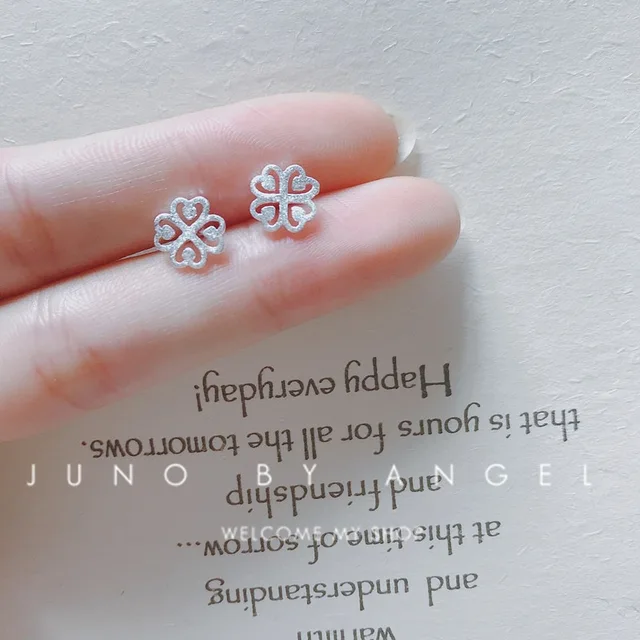 JUNO BY ANGEL
WELCOME MY SHOP
warmth
and understanding
at this time of sorrow...
and friendship
that is yours for all the tomorrows.
Happy everyday!